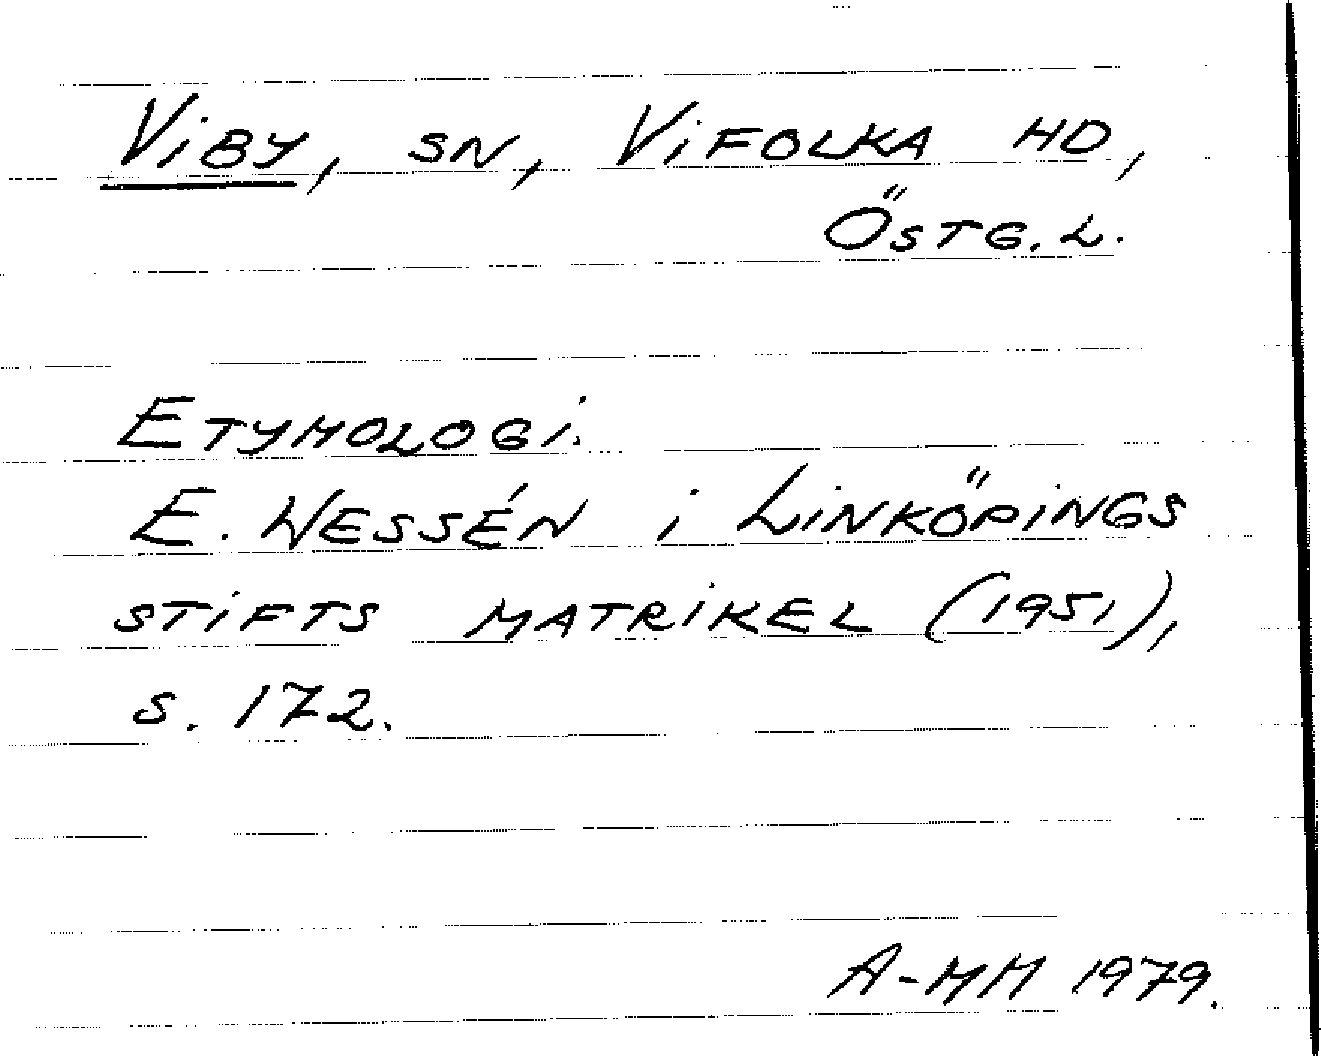 Viby, sn, Vifolka hd,
Östg. L.
Etymologi.
E. Wessén i Linköpings
stifts matrikel (1951),
s. 172.
A-MM 1979.